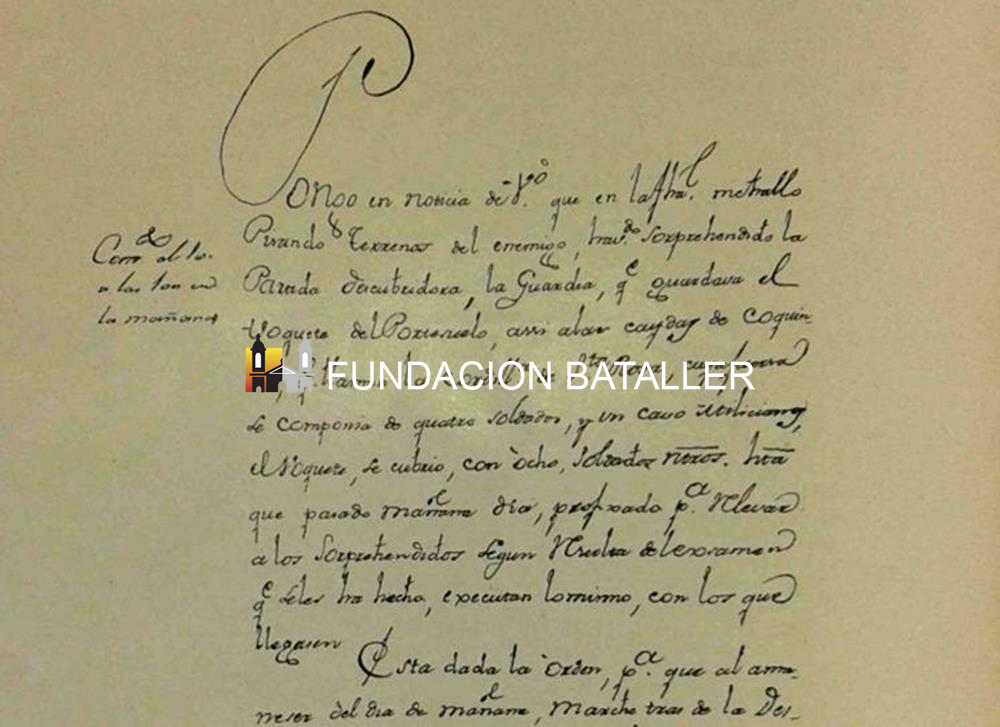 Pongo en noticia de V.º que en la Ahâl. me hallo
Pisando Terrenos del enemigo, havido. sorprehendido la
Parada descubridora, la Guardia, q.e guardava el
Boquete del Portesuelo, assi a las caydas de Coquin-
FUNDACION BATALLER
se componia de quatro soldados, y un cavo Miliciano,
el Boquete, se cubrio, con ocho, soldados ntros. hta
que pasado mañana dia, prefixado p.a Rlevar
a los sorprehendidos segun Rsulta del examen
q.e se les ha hecho, executan lo mismo, con los que
llegasen
Esta dada la orden, p.a que al ama-
neser del dia de mañana, marche tras de la Des-
la mañana